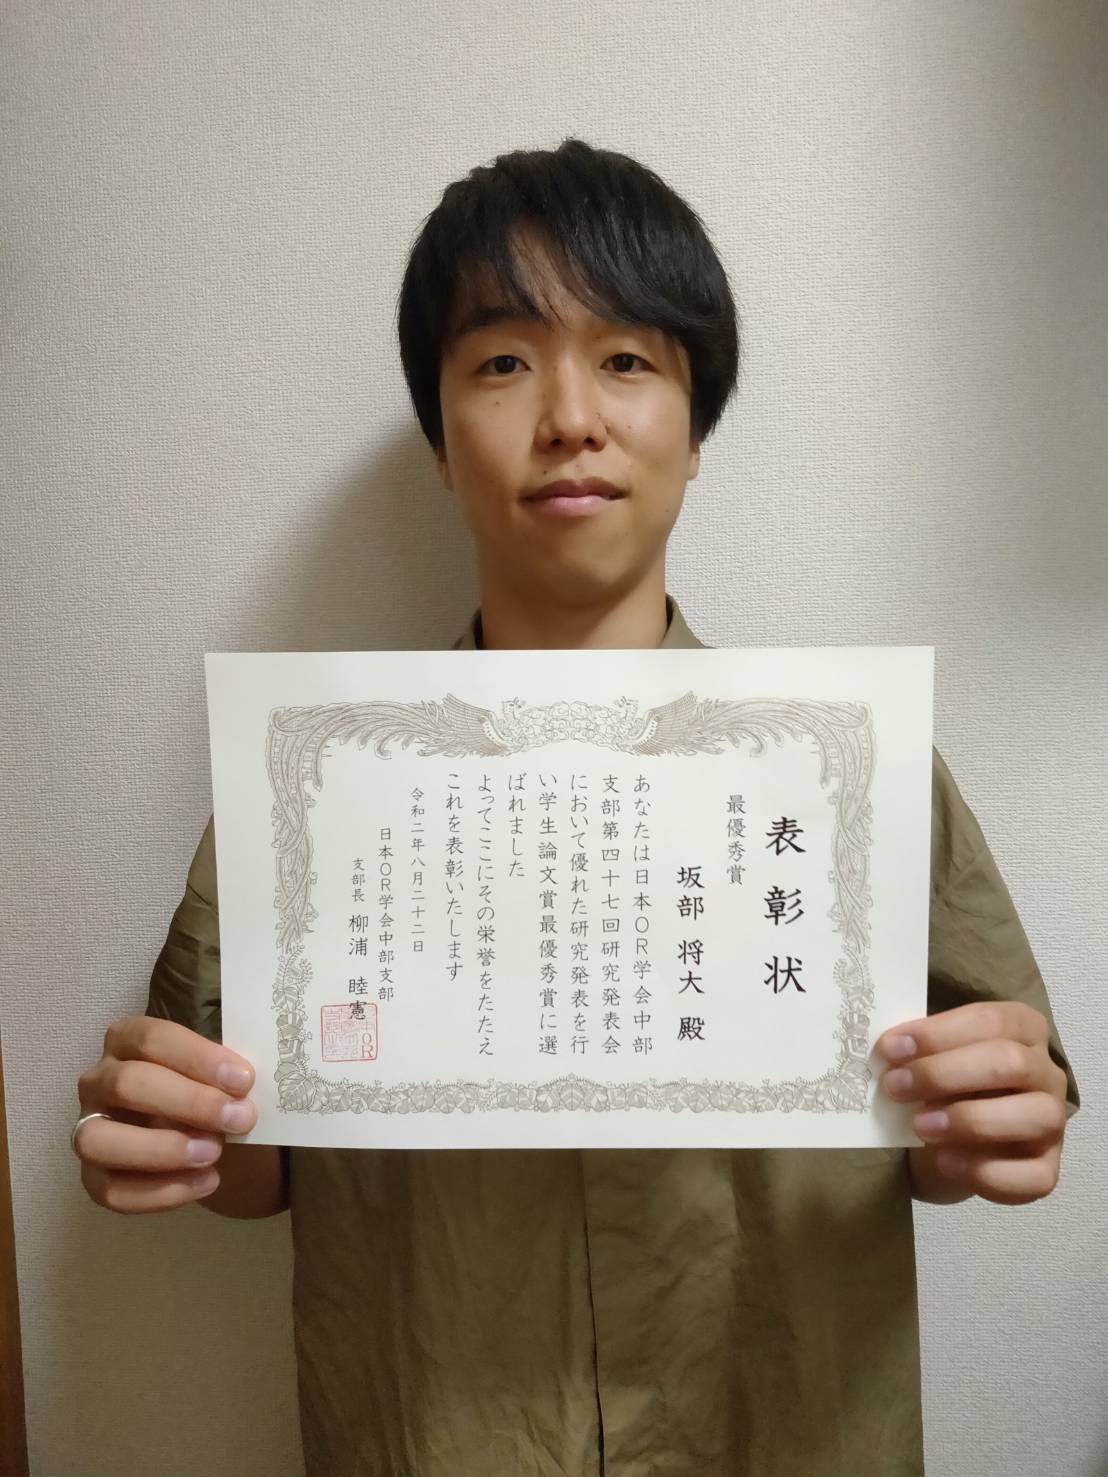 表彰状
最優秀賞
坂部 将大 殿
あなたは日本OR学会中部
支部第四十七回研究発表会
において優れた研究発表を行
い学生論文賞最優秀賞に選
ばれました
よってここにその栄誉をたたえ
これを表彰いたします
令和二年八月二十二日
日本OR学会中部支部
支部長 柳浦 睦憲